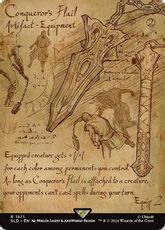 Conqueror's Flail
Artifact - Equipment
Equipped creature gets +1/+1
for each color among permanents you control.
As long as Conqueror's Flail is attached to a creature,
your opponents can't cast spells during your turn.
Equip 2
R 1671
SLD • EN